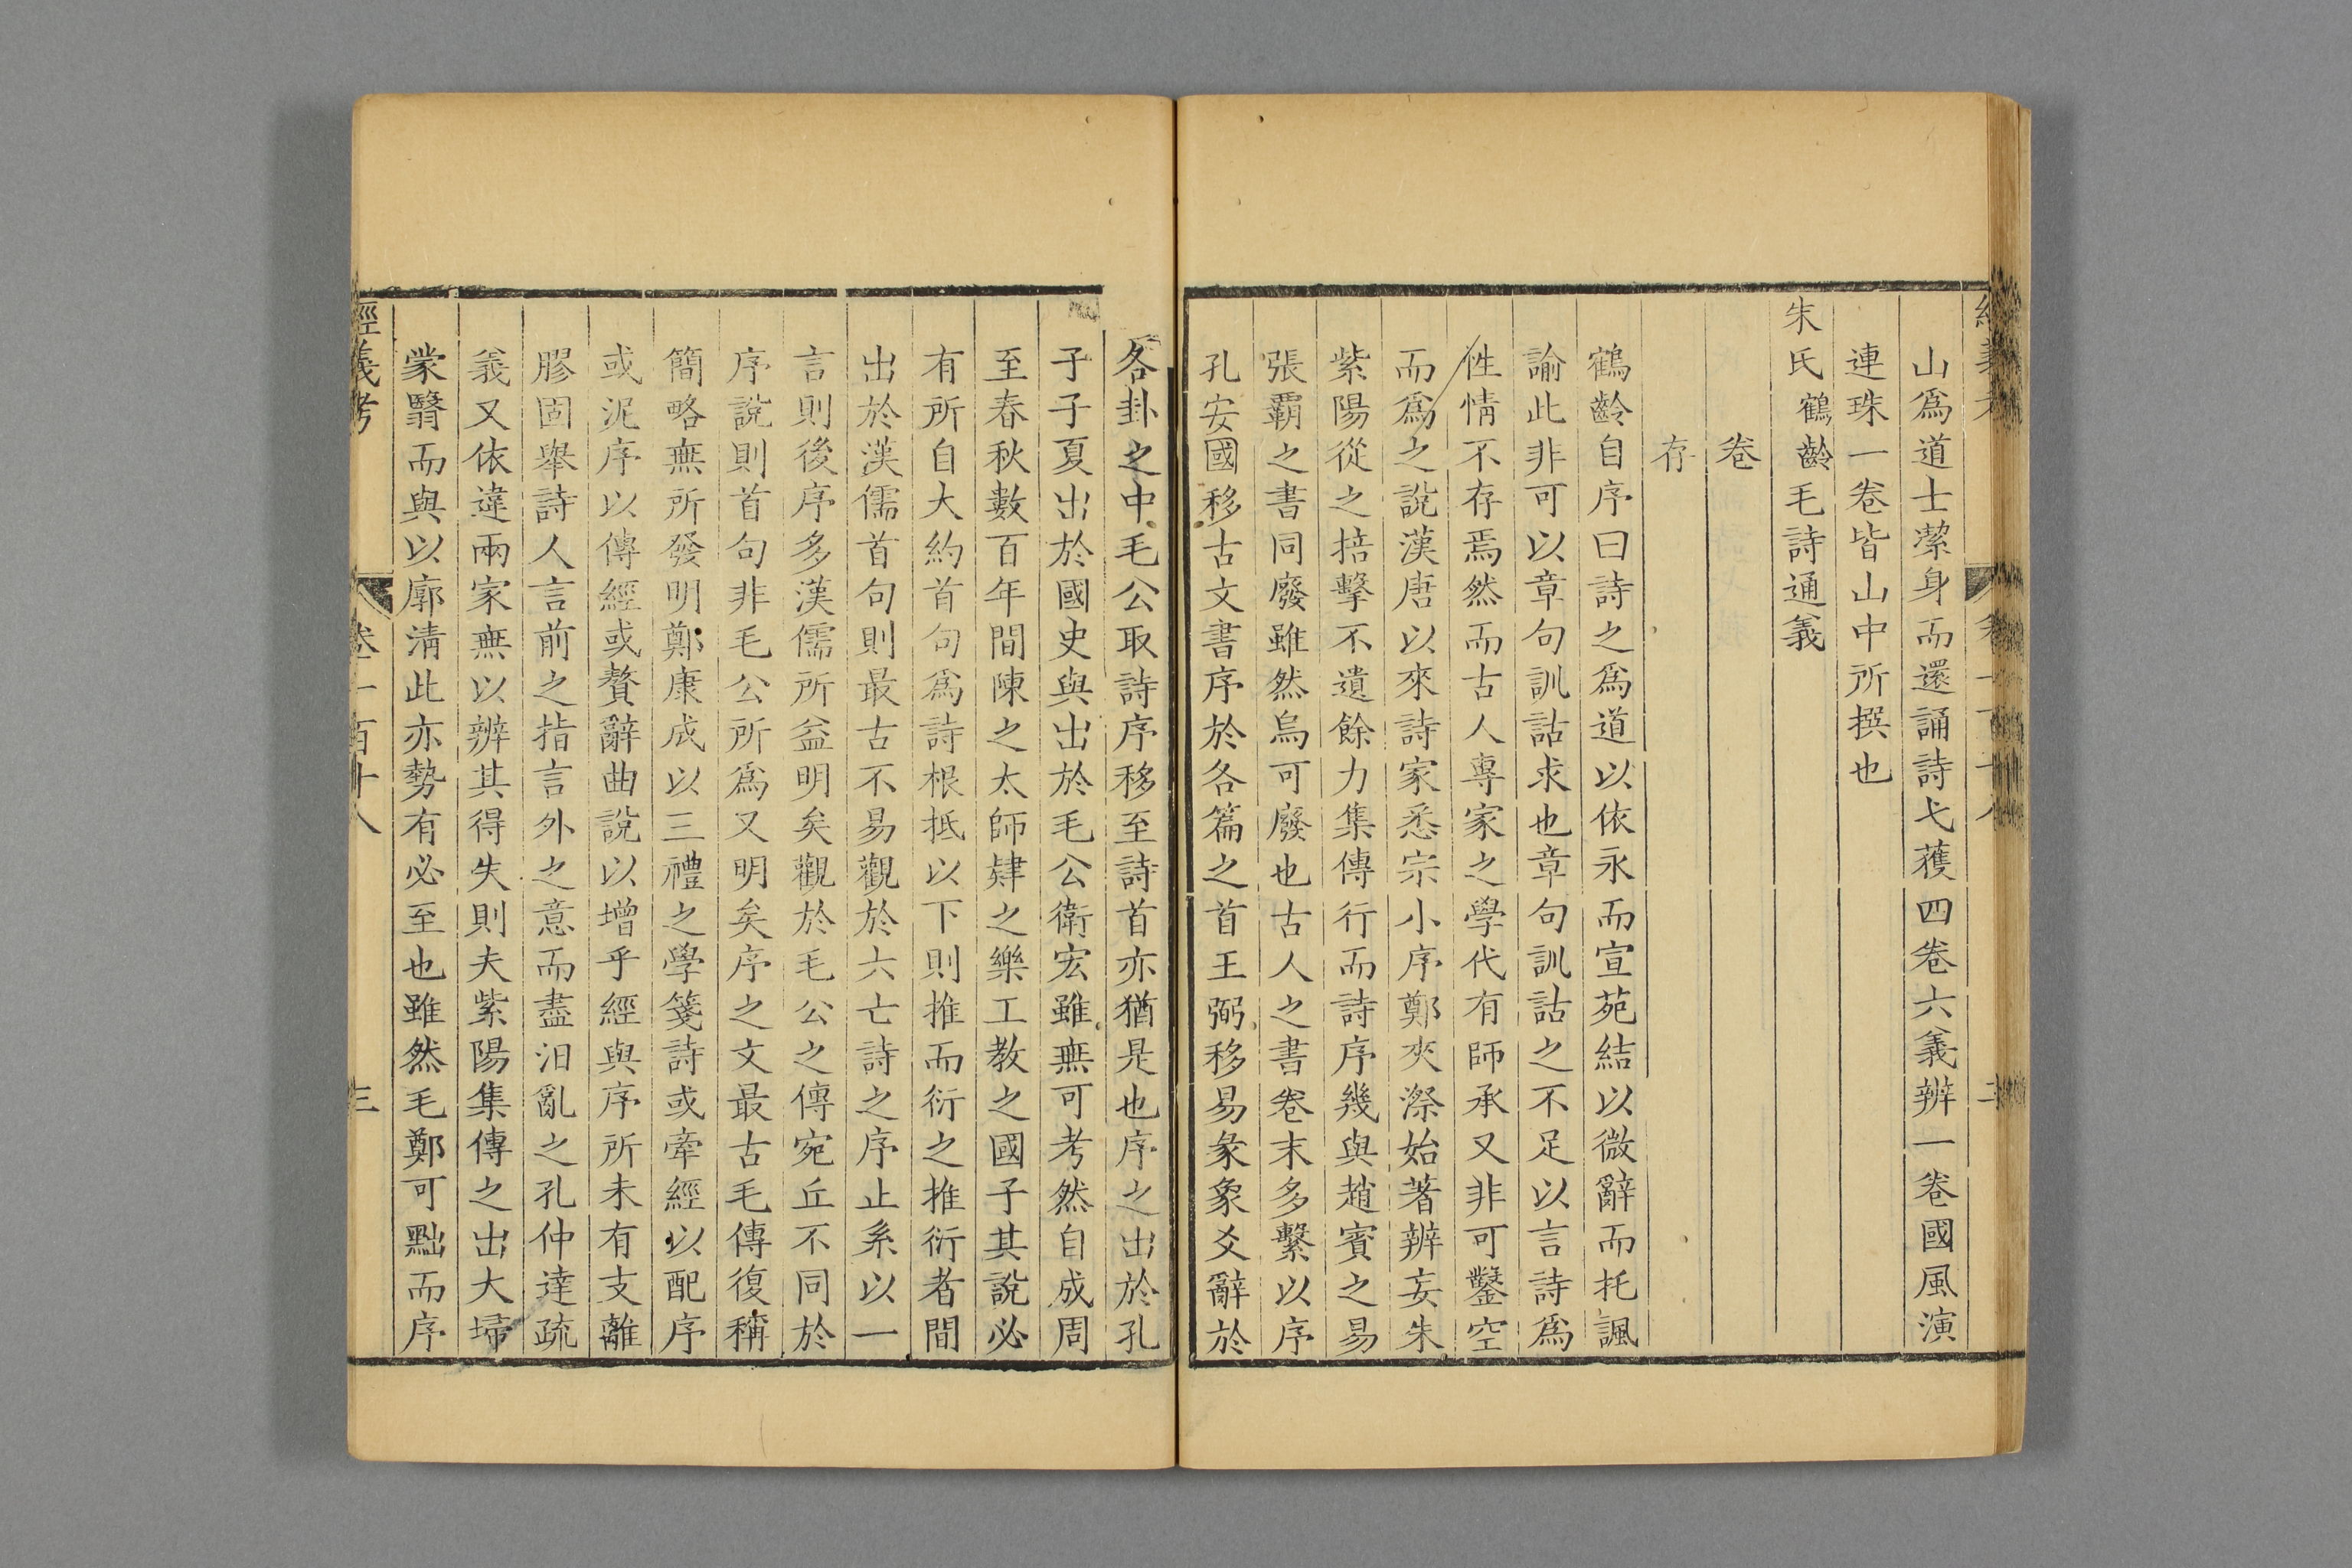 山爲道士潔身而還誦詩弋獲四卷六義辨一卷國風演
連珠一卷皆山中所撰也
朱氏鶴齡毛詩通義
卷
存
鶴齡自序曰詩之爲道以依永而宣菀結以微辭而托諷
諭此非可以章句訓詁求也章句訓詁之不足以言詩爲
性情不存焉然而古人專家之學代有師承又非可鑿空
而爲之說漢唐以來詩家悉宗小序鄭夾漈始著辨妄朱
紫陽從之掊擊不遺餘力集傳行而詩序幾與趙賓之易
張霸之書同廢雖然烏可廢也古人之書卷末多繫以序
孔安國移古文書序於各篇之首王弼移易彖象爻辭於
各卦之中毛公取詩序移至詩首亦猶是也序之出於孔
子子夏出於國史與出於毛公衛宏雖無可考然自成周
至春秋數百年間陳之太師肄之樂工教之國子其說必
有所自大約首句爲詩根抵以下則推而衍之推衍者間
出於漢儒首句則最古不易觀於六亡詩之序止系以一
言則後序多漢儒所益明矣觀於毛公之傳宛丘不同於
序說則首句非毛公所爲又明矣序之文最古毛傳復稱
簡略無所發明鄭康成以三禮之學箋詩或牽經以配序
或泥序以傳經或贅辭曲說以增乎經與序所未有支離
膠固舉詩人言前之指言外之意而盡汨亂之孔仲達疏
義又依違兩家無以辨其得失則夫紫陽集傳之出大埽
蒙翳而與以廓清此亦勢有必至也雖然毛鄭可黜而序
經義考
卷一百十八
三